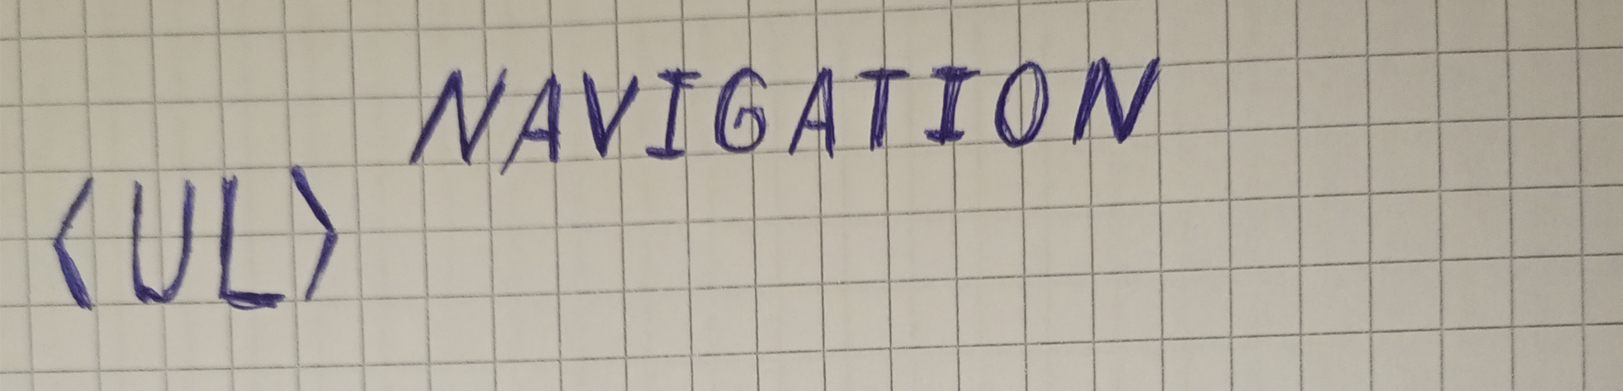 NAVIGATION
<UL>